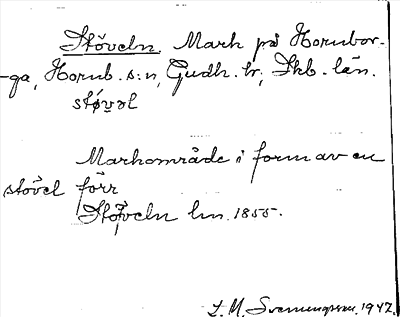 Stöveln. Mark på Hornbor-
-ga, Hornb. s:n, Gudh. hr, Skb. län.
støvəl
Markområde i form av en
stövel förr
Stöfveln lm. 1855.
L. M. Svenungsson 1947.